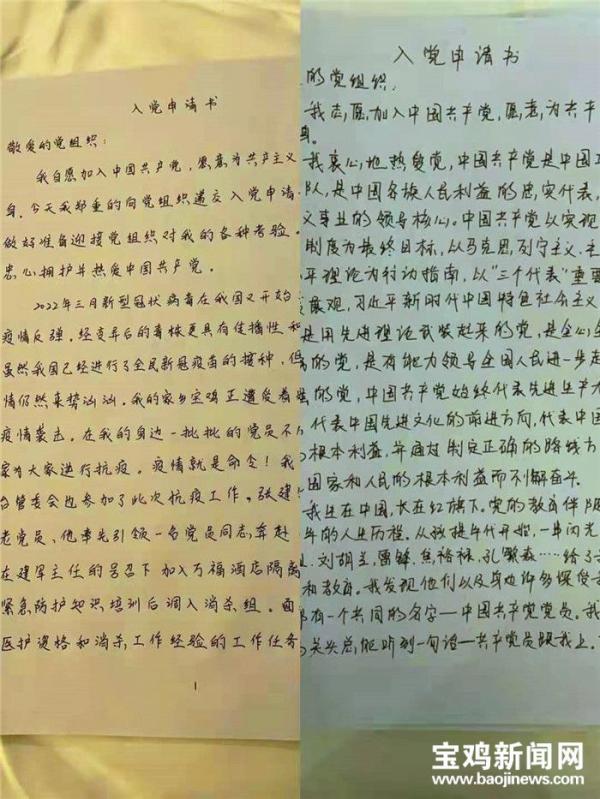 入党申请书
敬爱的党组织：
我自愿加入中国共产党，愿意为共产主义
身。今天我郑重的向党组织递交入党申请
做好准备迎接党组织对我的各种考验。
忠心拥护并热爱中国共产党。
2022年三月新型冠状病毒在我国又开始
疫情反弹。经变异后的毒株更具有传播性和
虽然我国已经进行了全民新冠疫苗的接种，但
情仍然来势汹汹。我的家乡宝鸡正遭受着
疫情袭击。在我的身边一批批的党员不
家为大家进行抗疫。疫情就是命令！我
台管委会也参加了此次抗疫工作。张建
老党员、他率先引领一名党员同志，奔赴
在建军主任的号召下加入万福酒店隔离
紧急防护知识培训后调入消杀组。面
医护资格和消杀工作经验的工作任务
1
入党申请书
的党组织：
我志愿加入中国共产党，愿意为共产
身。
我衷心地热爱党，中国共产党是中国工
队，是中国各族人民利益的忠实代表，
义事业的领导核心。中国共产党以实现
制度为最终目标，以马克思列宁主义、毛
平理论为行动指南，以“三个代表”重要
发展观，习近平新时代中国特色社会主义
是用先进理论武装起来的党，是全心全
的党，是有能力领导全国人民进一步走
的党，中国共产党始终代表先进生产力
代表中国先进文化的前进方向，代表中国
根本利益，并通过制定正确的路线方
国家和人民的根本利益而不懈奋斗。
我生在中国，长在红旗下。党的教育伴随
年的人生历程。从孩提年代开始，一串闪光
刘胡兰、雷锋、焦裕禄、孔繁森……给了
和教育。我发现他们以及身边许多深受
有一个共同的名字——中国共产党党员。我
关头总能听到一句话——共产党员跟我上。
宝鸡新闻网
www.baojinews.com